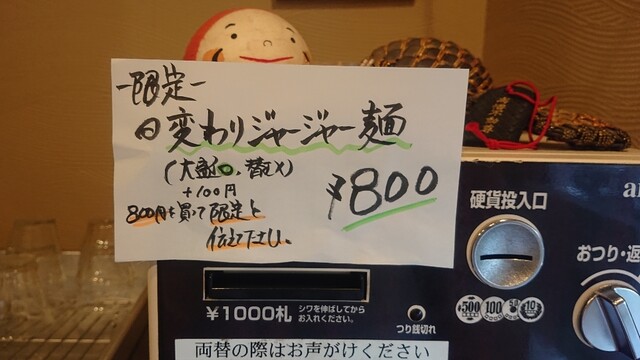 -限定-
日変わりジャージャー麺
(大盛○、替×)
+100円
¥800
800円を買って限定と
伝えて下さい。
硬貨投入口
おつり・返
¥1000札
シワを伸ばしてから
お入れください。
つり銭切れ
500
100
10
両替の際はお声がけください